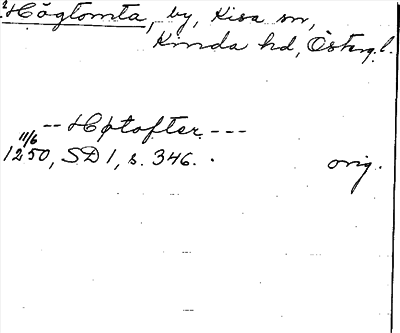 Högtomta, by, Kisa sn,
Kinda hd, Österg. l.
-- Høtofter ---
11/6
1250, SD 1, s. 346. orig.